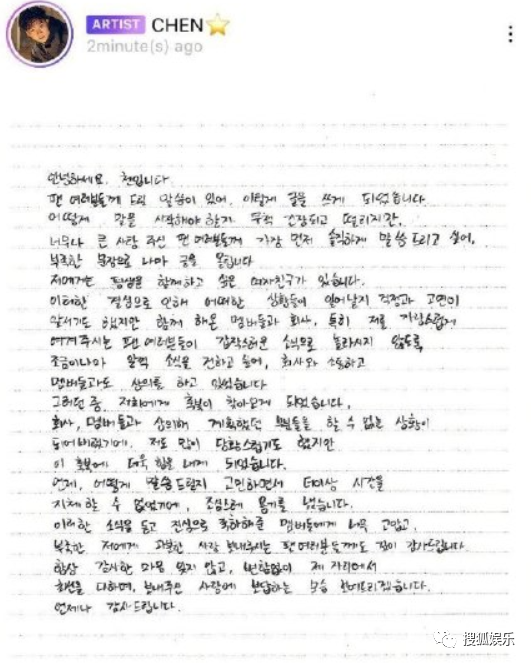 ARTIST CHEN⭐
2minute(s) ago
안녕하세요. 첸입니다
팬 여러분들께 드릴 말씀이 있어, 이렇게 글을 쓰게 되었습니다
어떻게 말을 시작해야 할지 무척 긴장되고 떨리지만,
너무나 큰 사랑 주신 팬 여러분들께 가장 먼저 솔직하게 말씀 드리고 싶어,
부족한 문장으로 나마 글을 올립니다
저에게는 평생을 함께하고 싶은 여자친구가 있습니다.
이러한 결심으로 인해 어떠한 상황들이 일어날지 걱정과 고민이
앞서기도 했지만 함께 해온 멤버들과 회사, 특히 저를 자랑스럽게
여겨주시는 팬 여러분들이 갑작스러운 소식으로 놀라시지 않도록
조금이나마 일찍 소식을 전하고 싶어, 회사와 소통하고
멤버들과도 상의를 하고 있었습니다
그러던 중, 저희에게 축복이 찾아오게 되었습니다.
회사, 멤버들과 상의해 계획했던 부분들을 할 수 없는 상황이
되어버렸기에, 저도 많이 당황스럽기도 했지만
이 축복에 더욱 힘을 내게 되었습니다.
언제, 어떻게 말씀드릴지 고민하면서 더이상 시간을
지체할 수 없었기에, 조심스레 용기를 냈습니다.
이러한 소식을 듣고 진심으로 축하해준 멤버들에게 너무 고맙고,
부족한 저에게 과분한 사랑 보내주시는 팬 여러분들께도 깊이 감사드립니다
항상 감사한 마음 잊지 않고, 변함없이 제 자리에서
최선을 다하며, 보내주신 사랑에 보답하는 모습 보여드리겠습니다.
언제나 감사드립니다.
搜狐娱乐